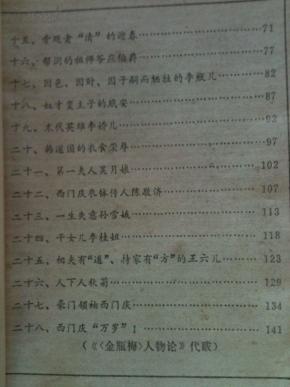 十五、 “清”的迎春 71
十六、帮闲的祖师爷应伯爵 77
十七、因色、因财、因子嗣而牺牲的李瓶儿 82
十八、奴才变主子的玳安 87
十九、末代英雄李娇儿 92
二十、韩道国的衣食荣辱 97
二十一、第一夫人吴月娘 102
二十二、西门庆衣钵传人陈敬济 107
二十三、一生失意孙雪娥 113
二十四、干女儿李桂姐 118
二十五、相夫有“道”、持家有“方”的王六儿 123
二十六、人下人秋菊 129
二十七、豪门领袖西门庆 134
二十八、西门庆“万岁”！ 141
（《〈金瓶梅〉人物论》代跋）